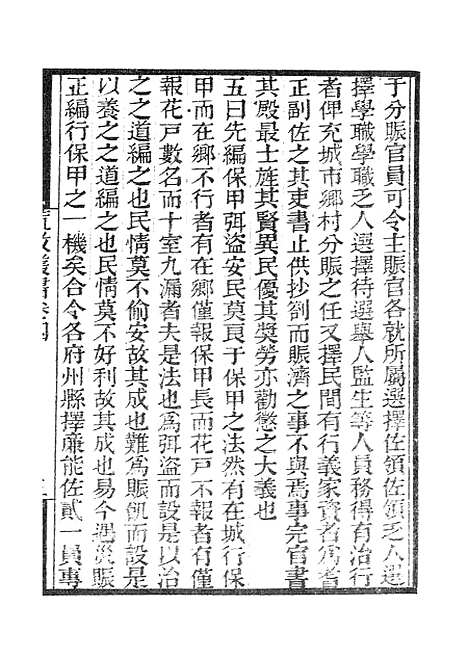 于分賑官員可令主賑官各就所屬選擇佐領佐領乏人選
擇學職學職乏人選擇待選舉人監生等人員務得有治行
者俾充城市鄉村分賑之任又擇民間有行義家資者爲耆
正副佐之其吏書止供抄劄而賑濟之事不與焉事完官書
其殿最士旌其賢異民優其奬勞亦勸懲之大義也
五曰先編保甲弭盜安民莫良于保甲之法然有在城行保
甲而在鄉不行者有在鄉僅報保甲長而花戸不報者有僅
報花戸數名而十室九漏者夫是法也爲弭盜而設是以治
之之道編之也民情莫不偷安故其成也難爲賑飢而設是
以養之之道編之也民情莫不好利故其成也易今遇災賑
正編行保甲之一機矣合令各府州縣擇廉能佐貳一員專
荒政叢書卷四